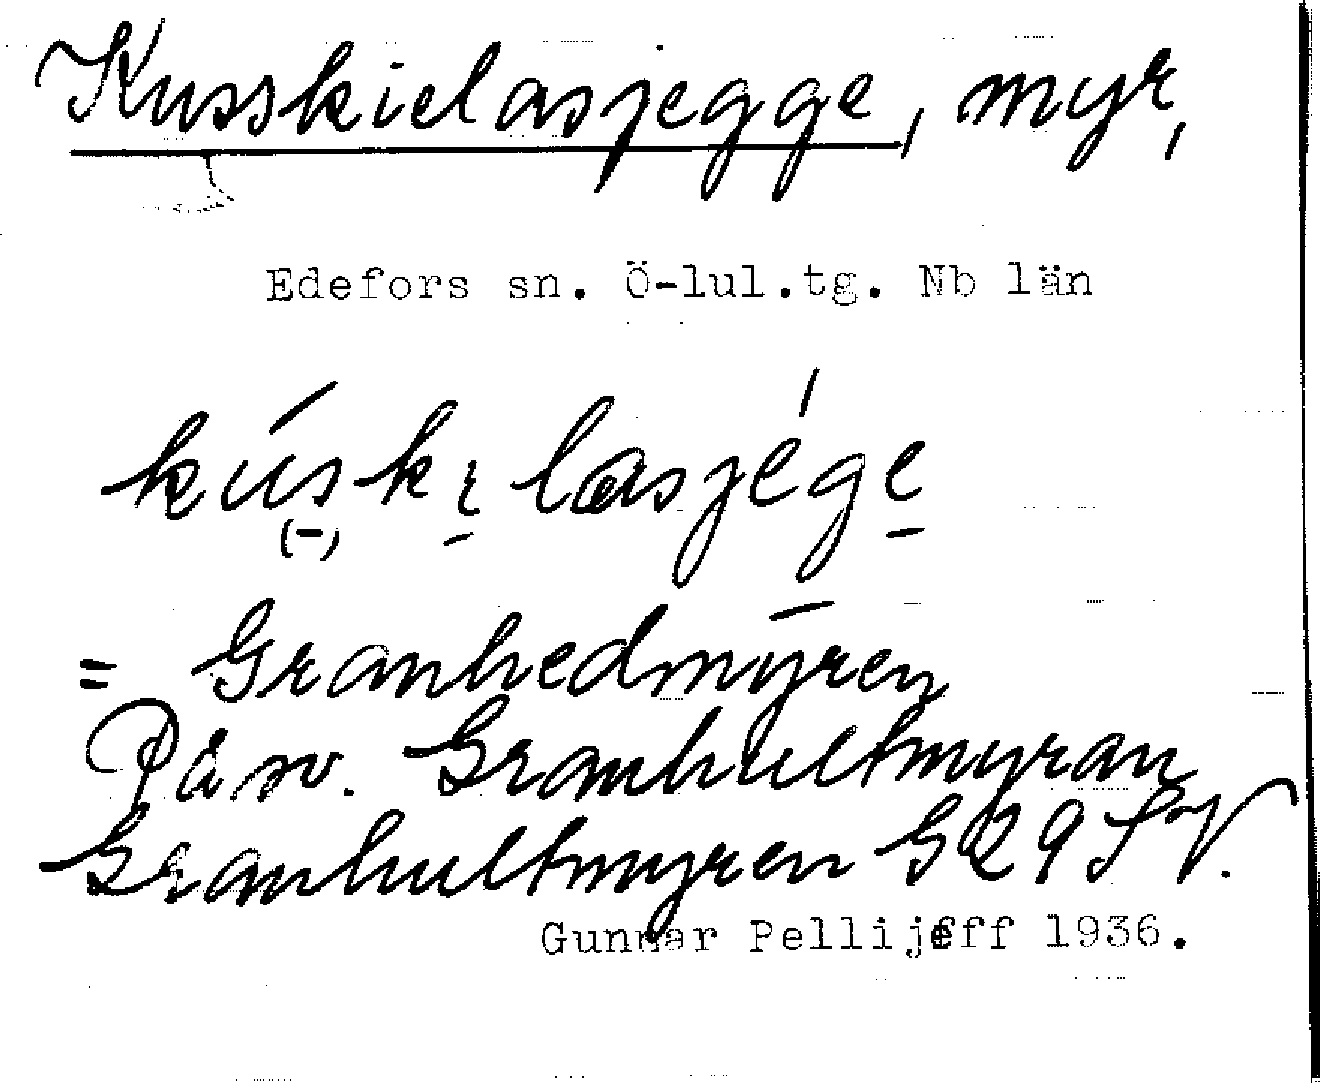 Kusskielasjegge, myr,
Edefors sn. Ö-lul.tg. Nb län
kúskɩlasjége
= Granhedmyren
På sv. Granhultmyran
Granhultmyren G29SV.
Gunnar Pellijeff 1936.